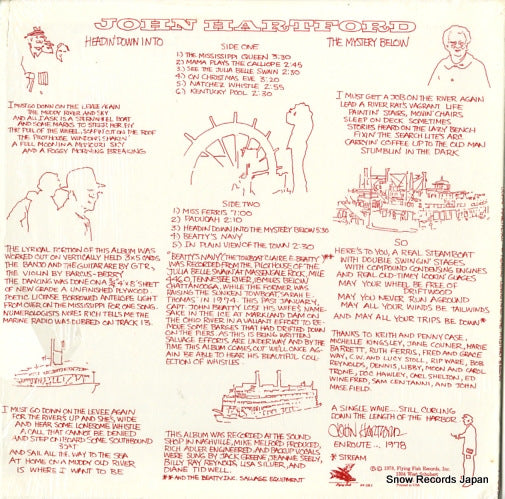 JOHN HARTFORD
HEADIN' DOWN INTO
THE MYSTERY BELOW
SIDE ONE
1) THE MISSISSIPPI QUEEN 3:30
2) MAMA PLAYS THE CALLIOPE 2:45
3) SEE THE JULIA BELLE SWAIN 2:30
4) ON CHRISTMAS EVE 3:20
5) NATCHEZ WHISTLE 2:55
6) KENTUCKY POOL 2:30
I MUST GO DOWN ON THE LEVEE AGAIN
THE MUDDY RIVER AND SKY
AND ALL I ASK IS A STERNWHEEL BOAT
AND SOME MARKS TO STEER HER BY
THE PULL OF THE WHEEL, SOFT FEET ON THE ROOF
THE PILOTHOUSE WINDOWS SHAKIN'
A FULL MOON IN A MISSOURI SKY
AND A FOGGY MORNING BREAKING
I MUST GET A JOB ON THE RIVER AGAIN
LEAD A RIVER RAT'S VAGRANT LIFE
PAINTIN' STAGES, MOVIN' CHAIRS
SLEEP ON DECK SOMETIMES
STORIES HEARD ON THE LAZY BENCH
FIXIN' THE SEARCH LITE'S ARC
CARRYIN' COFFEE UP TO THE OLD MAN
STUMBLIN' IN THE DARK
SIDE TWO
1) MISS FERRIS 7:00
2) PADUCAH 2:10
3) HEADIN' DOWN INTO THE MYSTERY BELOW 5:30
4) BEATTY'S NAVY
5) IN PLAIN VIEW OF THE TOWN 2:30
THE LYRICAL PORTION OF THIS ALBUM WAS
WORKED OUT ON VERTICALLY HELD 3X5 CARDS.
THE BANJO AND THE GUITAR ARE BY GTR,
THE VIOLIN BY BARCUS-BERRY
THE DANCING WAS DONE ON A 3/4" 4'X8' SHEET
OF NEW GRADE A UNFINISHED PLYWOOD
POETIC LICENSE BORROWED ANTIQUE LIGHT
FROM OVER ON THE MISSISSIPPI FOR OHIO SONG.
NUMEROLOGISTS NOTE: RICH TELLS ME THE
MARINE RADIO WAS DUBBED ON TRACK 13.
"BEATTY'S NAVY" (THE TOWBOAT CLAIRE E. BEATTY)**
WAS RECORDED FROM THE PILOTHOUSE OF THE
JULIA BELLE SWAIN AT MASSENGALE ROCK, MILE
446.0, TENNESSEE RIVER, 18 MILES BELOW
CHATTANOOGA, WHILE THE FORMER WAS
RAISING THE SUNKEN TOWBOAT "SARAH E.
THOMAS" IN 1974. THIS PAST JANUARY,
CAPT. JOHN BEATTY LOST HIS WIFE'S NAME-
SAKE IN THE ICE AT MARKLAND DAM ON
THE OHIO RIVER IN A VALIANT EFFORT TO RE-
MOVE SOME BARGES THAT HAD DRIFTED DOWN
ON THE PIERS. AS THIS IS BEING WRITTEN,
SALVAGE EFFORTS ARE UNDERWAY AND BY THE
TIME THIS ALBUM COMES OUT WE'LL ONCE AGA-
IN BE ABLE TO HEAR HIS BEAUTIFUL COLL-
ECTION OF WHISTLES.
SO
HERE'S TO YOU, A REAL STEAMBOAT
WITH DOUBLE SWINGIN' STAGES,
WITH COMPOUND CONDENSING ENGINES
AND REAL OLD-TIMEY LOOKIN' GUAGES
MAY YOUR WHEEL BE FREE OF
DRIFTWOOD
MAY YOU NEVER RUN AGROUND
MAY ALL YOUR WINDS BE TAILWINDS
AND MAY ALL YOUR TRIPS BE DOWN*
THANKS TO KEITH AND PENNY CASE,
MICHELLE KINGSLEY, JANE COINER, MARIE
BARRETT, RUTH FERRIS, FRED AND GRACE
WAY, C.W. AND LUCY STOLL, RIP WARE, BOB
REYNOLDS, DENNIS, LIBBY, MOON AND CAROL
TRONE, DOC HAWLEY, CARL SHELTON, ED
WINEFRED, SAM CENTANNI, AND JOHN
MASEFIELD.
I MUST GO DOWN ON THE LEVEE AGAIN
FOR THE RIVER'S UP AND SHE'S WIDE
AND HEAR SOME LONESOME WHISTLE
A CALL THAT CANNOT BE DENIED
AND STEP ON BOARD SOME SOUTHBOUND
BOAT
AND SAIL ALL THE WAY TO THE SEA
AT HOME ON A MUDDY OLD RIVER
IS WHERE I WANT TO BE
THIS ALBUM WAS RECORDED AT THE SOUND
SHOP IN NASHVILLE. MIKE MELFORD PRODUCED,
RICH ADLER ENGINEERED AND BACKUP VOCALS
WERE SUNG BY JACK GREENE, JEANNIE SEELY,
BILLY RAY REYNOLDS, LISA SILVER, AND
DIANE TIDWELL.
** AND THE BEATTY, INC. SALVAGE EQUIPMENT
A SINGLE WAVE....STILL CURLING
DOWN THE LENGTH OF THE HARBOR..
John Hartford
ENROUTE.... 1978
* STREAM
Flying Fish
℗© 1978, Flying Fish Records, Inc.
1304 West Schubert
Snow Records Japan